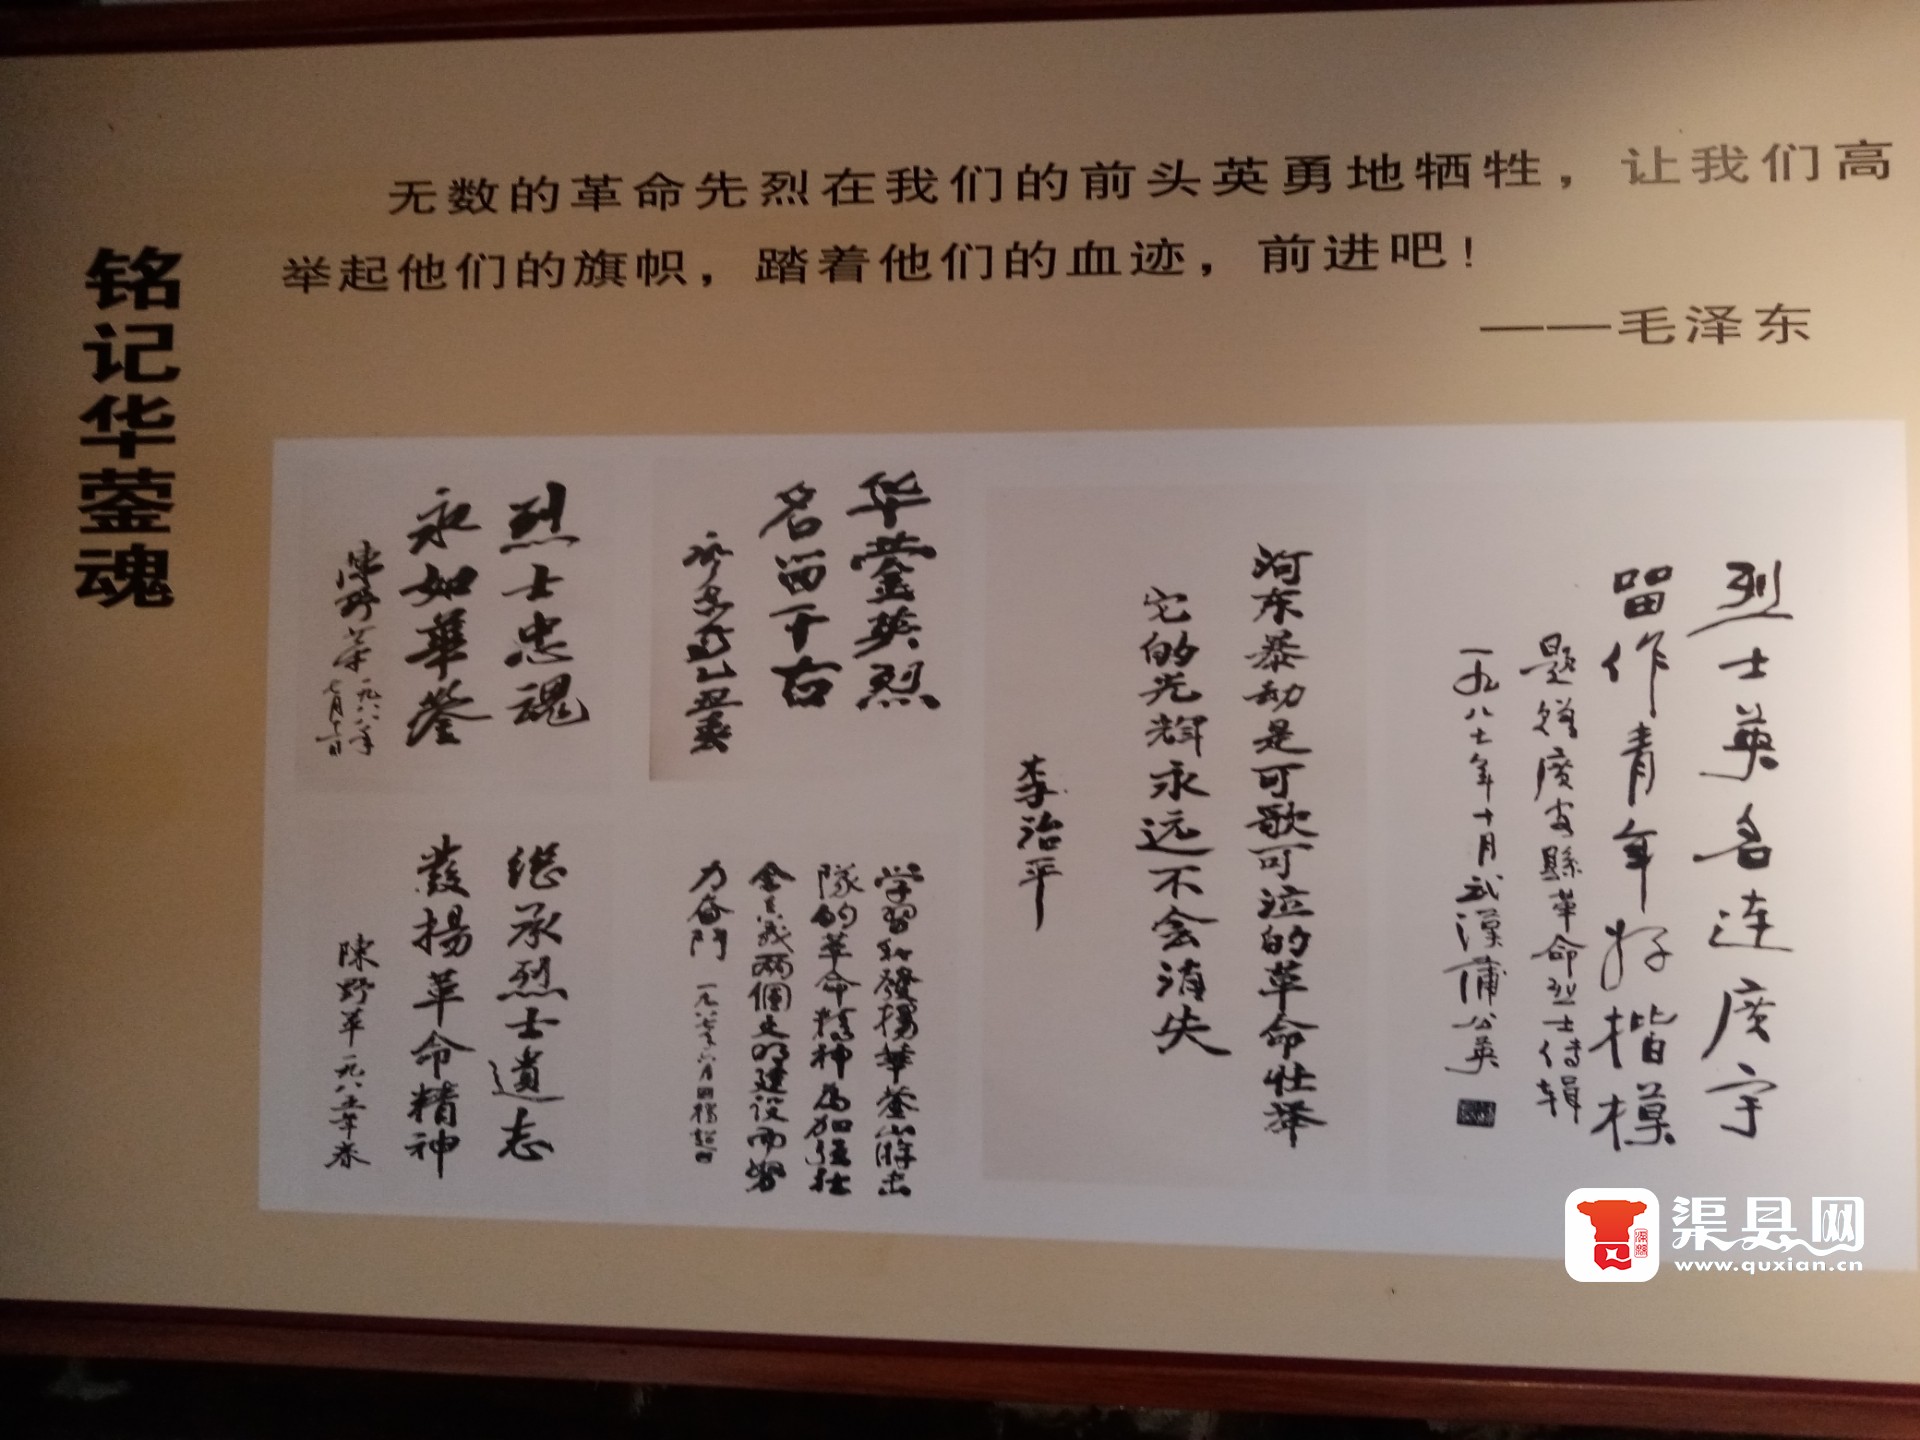 铭记华蓥魂
无数的革命先烈在我们的前头英勇地牺牲，让我们高
举起他们的旗帜，踏着他们的血迹，前进吧！
——毛泽东
烈士英名连广宇
留作青年好楷模
一九八七年十月武漢蒲公英
河东暴动是可歌可泣的革命壮举
它的光辉永远不会消失
李治平
华蓥英烈
名留千古
乙丑春
烈士忠魂
永如華蓥
陳野苹一九八六年
七月十一日
学習和發揚華蓥山游击
隊的革命精神為加强社
会主义两個文明建设而努
力奋鬥 一九八七年六月四日楊超
继承烈士遺志
發揚革命精神
陳野苹一九八五年春
渠县网
www.quxian.cn